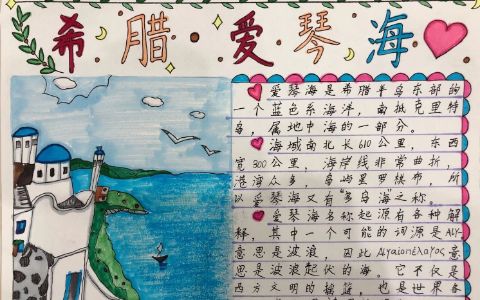 希腊·爱琴海
爱琴海是希腊半岛东部的
一个蓝色系海洋，南抵克里特
岛，属地中海的一部分。
海域南北长610公里，东西
宽300公里，海岸线非常曲折，
港湾众多，岛屿星罗棋布，所
以爱琴海又有“多岛海”之称。
爱琴海名称起源有各种解
释，其中一个可能的词源是ALY-
意思是波浪，因此ALyaiov
意
思是波浪起伏的海，它不仅是
西方文明的摇篮，也是世界各